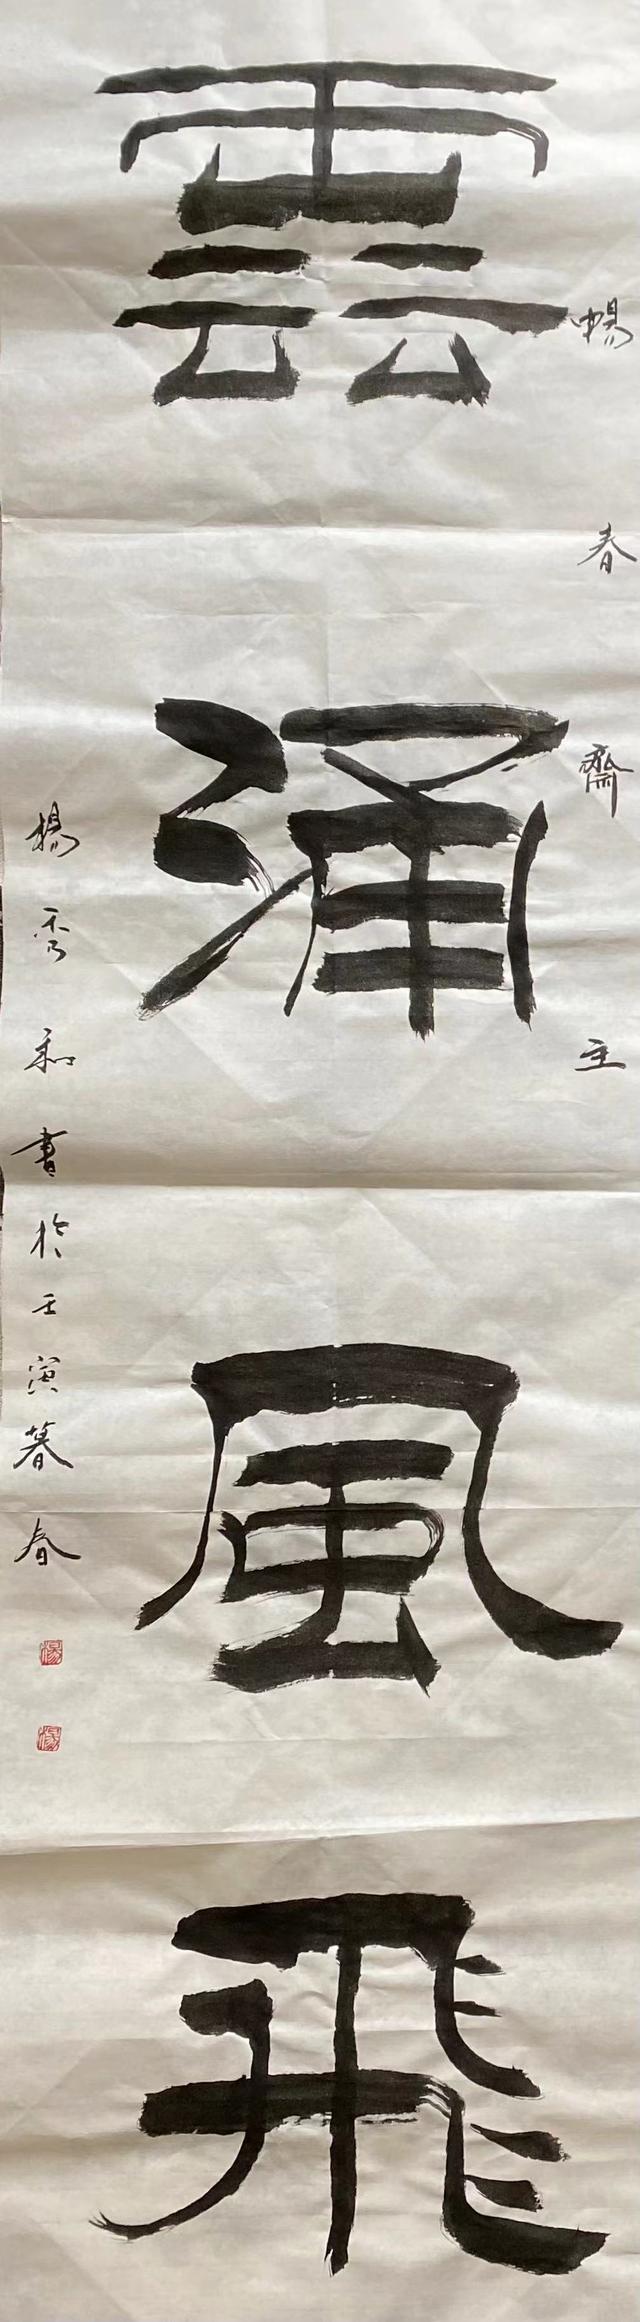 暢春齋主
雲涌風飛
楊秀和書於壬寅暮春